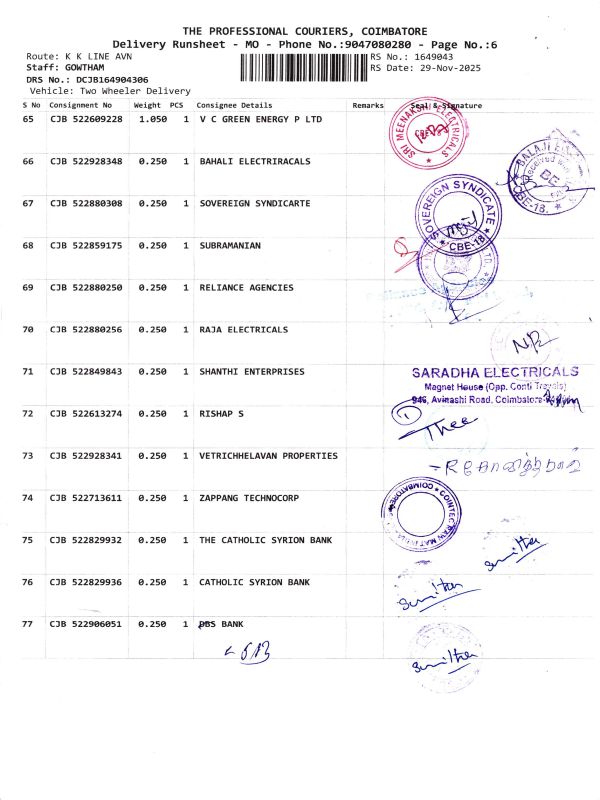 THE PROFESSIONAL COURIERS, COIMBATORE
Delivery Runsheet - MO - Phone No.:9047080280 - Page No.:6
Route: K K LINE AVN
RS No.: 1649043
Staff: GOWTHAM
RS Date: 29-Nov-2025
DRS No.: DCJB164904306
Vehicle: Two Wheeler Delivery
S No Consignment No Weight PCS Consignee Details Remarks Seal & Signature
65 CJB 522609228 1.050 1 V C GREEN ENERGY P LTD
SRI MEENAKSHI ELECTRICALS
CBE-18
66 CJB 522928348 0.250 1 BAHALI ELECTRIRACALS
BALAJI
Received
CBE-18.
67 CJB 522880308 0.250 1 SOVEREIGN SYNDICARTE
SOVEREIGN SYNDICATE
CBE-18
68 CJB 522859175 0.250 1 SUBRAMANIAN
69 CJB 522880250 0.250 1 RELIANCE AGENCIES
70 CJB 522880256 0.250 1 RAJA ELECTRICALS
71 CJB 522849843 0.250 1 SHANTHI ENTERPRISES
SARADHA ELECTRICALS
Magnet House (Opp. Conti Travels)
946, Avinashi Road, Coimbatore
72 CJB 522613274 0.250 1 RISHAP S
1
Thee
73 CJB 522928341 0.250 1 VETRICHHELAVAN PROPERTIES
74 CJB 522713611 0.250 1 ZAPPANG TECHNOCORP
COIMBATORE
75 CJB 522829932 0.250 1 THE CATHOLIC SYRION BANK
76 CJB 522829936 0.250 1 CATHOLIC SYRION BANK
77 CJB 522906051 0.250 1 DBS BANK